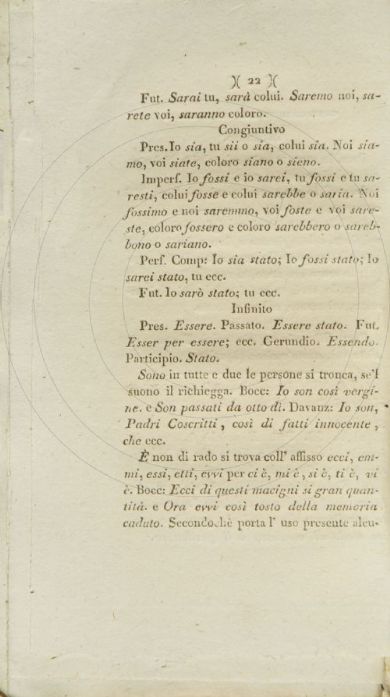 )( 22 )(
Fut. Sarai tu, sarà colui. Saremo noi, sa-
rete voi, saranno coloro.
Congiuntivo
Pres. Io sia, tu sii o sia, colui sia. Noi sia-
mo, voi siate, coloro siano o sieno.
Imperf. Io fossi e io sarei, tu fossi e tu sa-
resti, colui fosse e colui sarebbe o saria. Noi
fossimo e noi saremmo, voi foste e voi sare-
ste, coloro fossero e coloro sarebbero o sareb-
bono o sariano.
Perf. Comp: Io sia stato; Io fossi stato; Io
sarei stato, tu ecc.
Fut. Io sarò stato; tu ecc.
Infinito
Pres. Essere. Passato. Essere stato. Fut.
Esser per essere; ecc. Gerundio. Essendo.
Participio. Stato.
Sono in tutte e due le persone si tronca, se'l
suono il richiegga. Bocc: Io son così vergi-
ne. e Son passati da otto dì. Davanz: Io son,
Padri Coscritti, così di fatti innocente,
che ecc.
È non di rado si trova coll' affisso ecci, em-
mi, essi, etti, evvi per ci è, mi è, si è, ti è, vi
è. Bocc: Ecci di questi macigni si gran quan-
tità. e Ora evvi così tosto della memoria
caduto. Secondochè porta l' uso presente alcu-